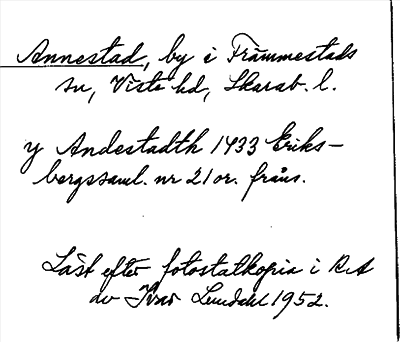 Annestad, by i Främmestads
sn, Viste hd, Skarab. l.
y Andestadth 1433 Eriks-
bergssaml. nr 21 or. frans.
Läst efter fotostatkopia i RA
av Ivar Lundahl 1952.